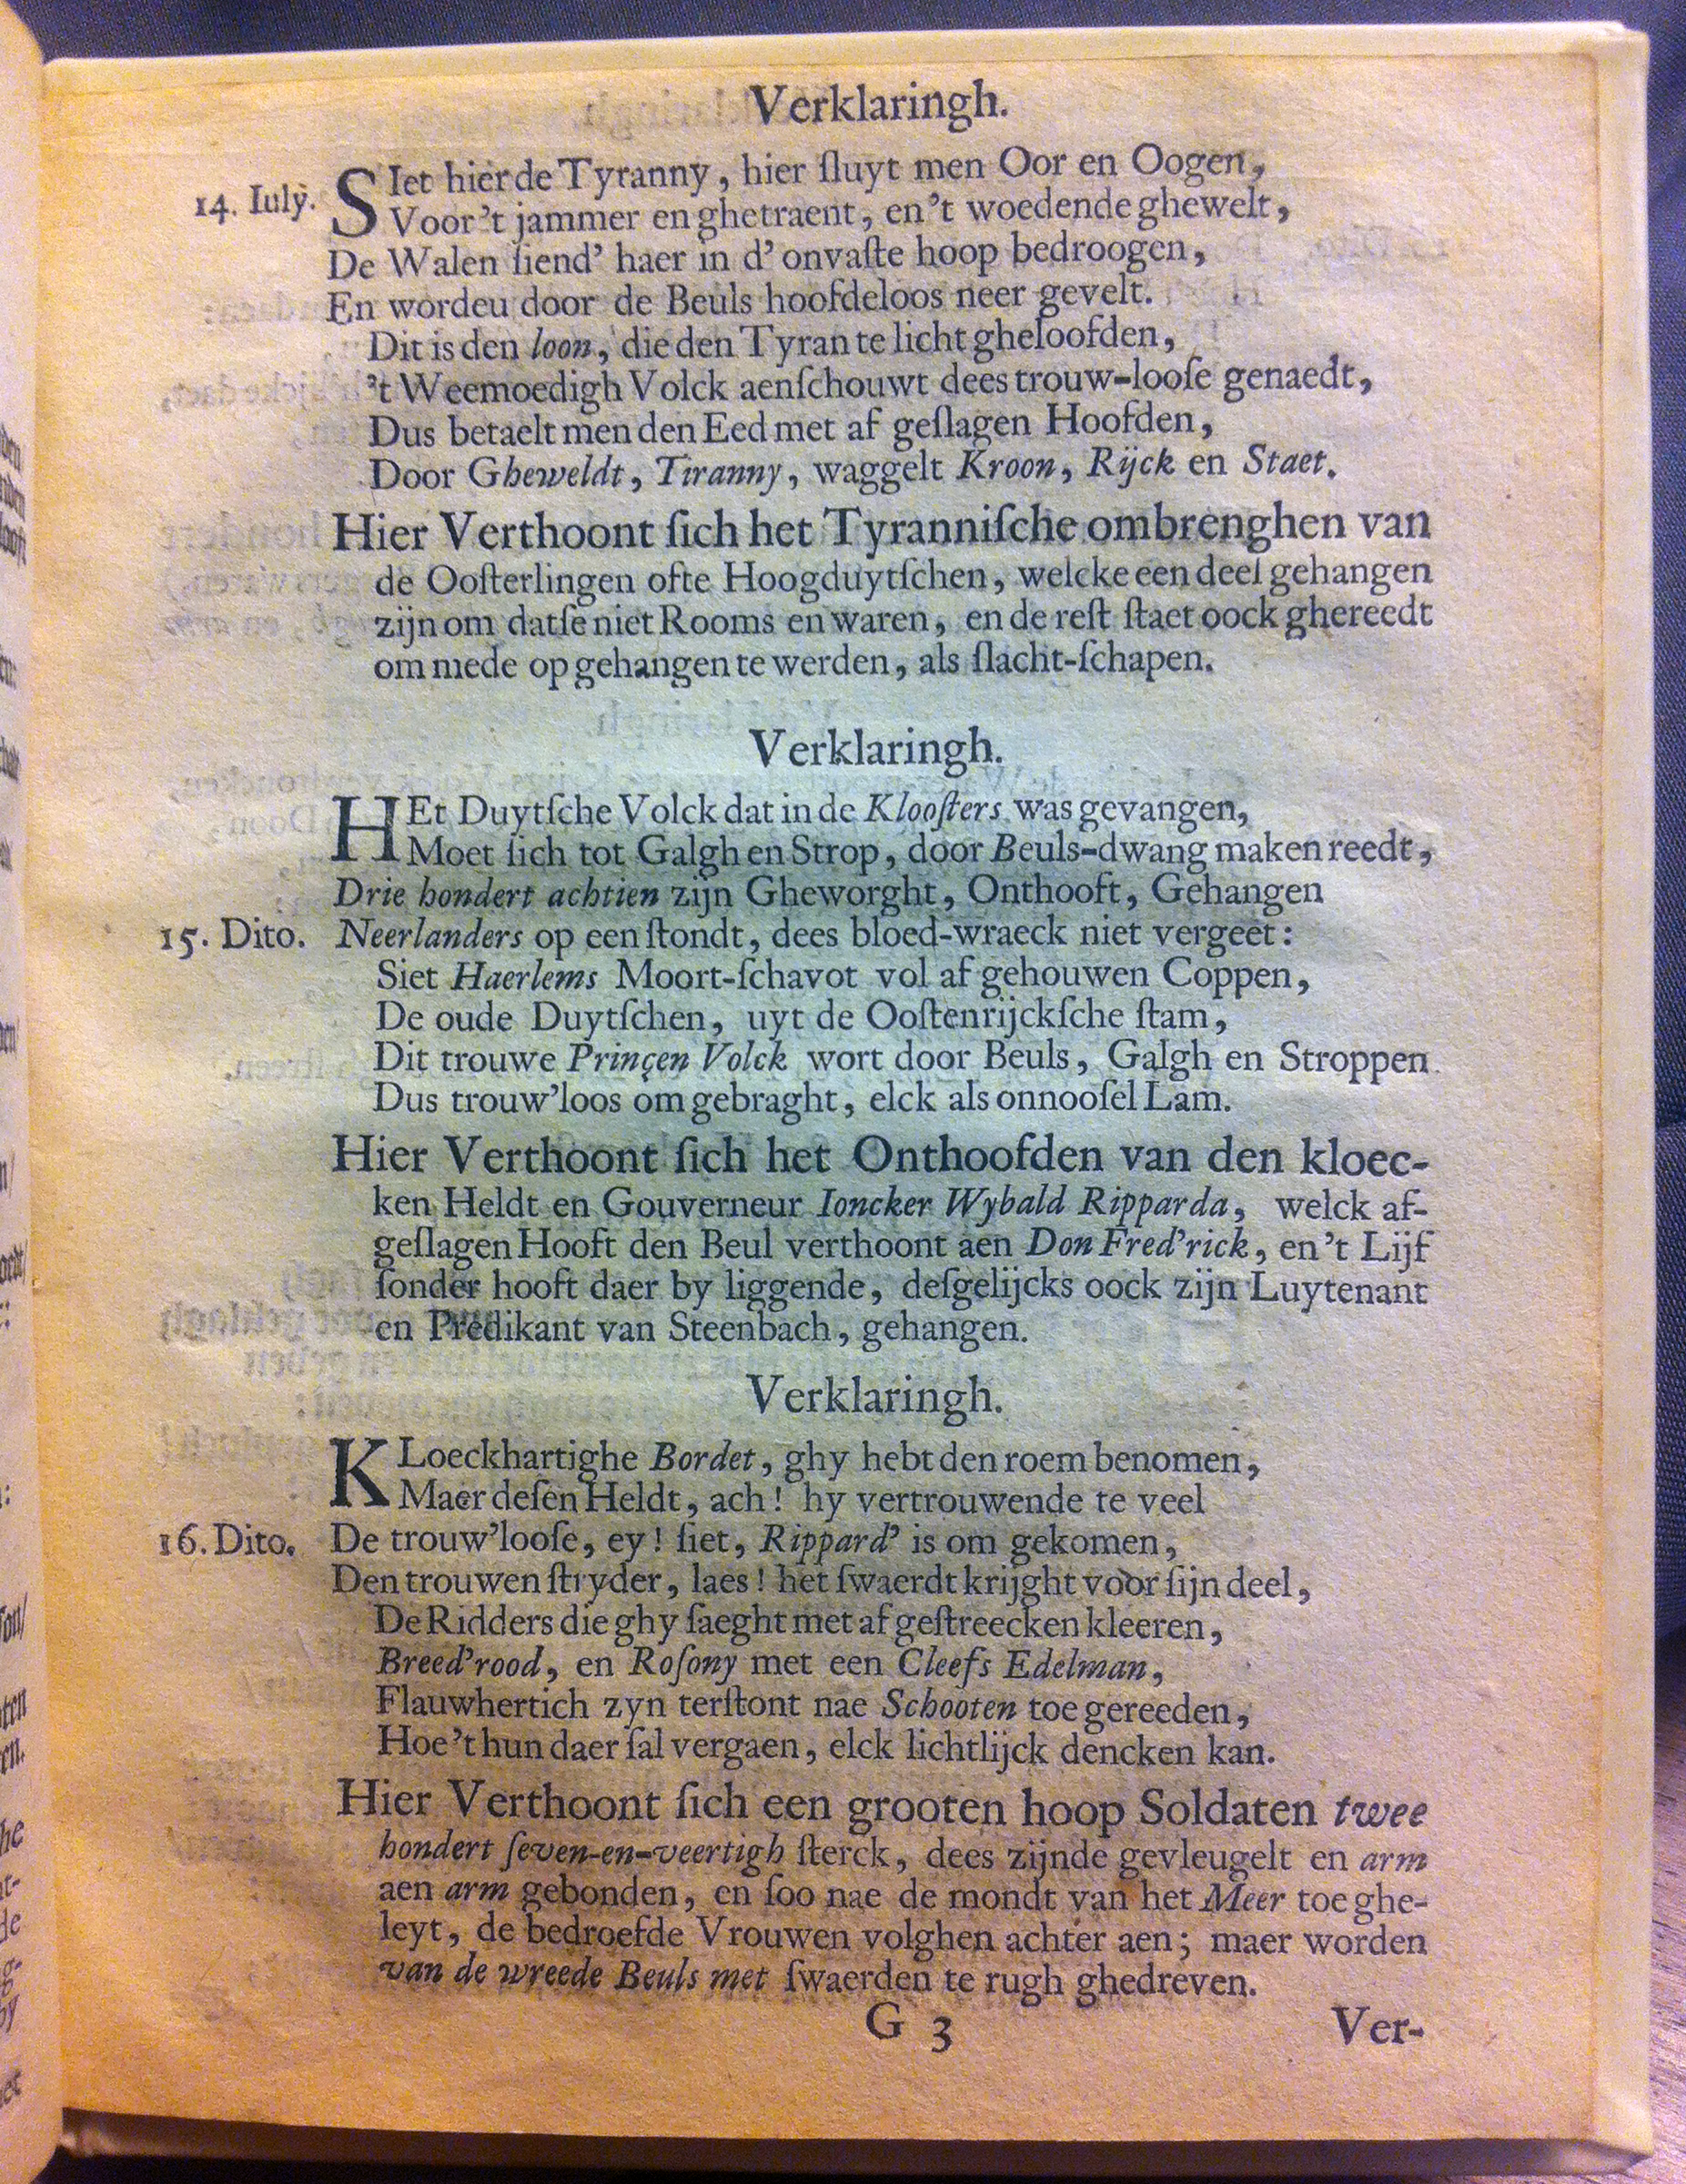 Verklaringh.
14. Iulÿ. SIet hier de Tyranny, hier ſluyt men Oor en Oogen,
Voor't jammer en ghetraent, en't woedende ghewelt,
De Walen ſiend' haer in d'onvaſte hoop bedroogen,
En wordeu door de Beuls hoofdeloos neer gevelt.
Dit is den loon, die den Tyran te licht gheloofden,
't Weemoedigh Volck aenſchouwt dees trouw-looſe genaedt,
Dus betaelt men den Eed met af geſlagen Hoofden,
Door Gheweldt, Tiranny, waggelt Kroon, Rijck en Staet.
Hier Verthoont ſich het Tyranniſche ombrenghen van
de Ooſterlingen ofte Hoogduytſchen, welcke een deel gehangen
zijn om datſe niet Rooms en waren, en de reſt ſtaet oock ghereedt
om mede op gehangen te werden, als ſlacht-ſchapen.
Verklaringh.
HEt Duytſche Volck dat in de Klooſters was gevangen,
Moet ſich tot Galgh en Strop, door Beuls-dwang maken reedt,
Drie hondert achtien zijn Gheworght, Onthooft, Gehangen
15. Dito. Neerlanders op een ſtondt, dees bloed-wraeck niet vergeet:
Siet Haerlems Moort-ſchavot vol af gehouwen Coppen,
De oude Duytſchen, uyt de Ooſtenrijckſche ſtam,
Dit trouwe Prinçen Volck wort door Beuls, Galgh en Stroppen
Dus trouw'loos om gebraght, elck als onnooſel Lam.
Hier Verthoont ſich het Onthoofden van den kloec-
ken Heldt en Gouverneur Ioncker Wybald Ripparda, welck af-
geſlagen Hooft den Beul verthoont aen Don Fred'rick, en't Lijf
ſonder hooft daer by liggende, deſgelijcks oock zijn Luytenant
en Predikant van Steenbach, gehangen.
Verklaringh.
KLoeckhartighe Bordet, ghy hebt den roem benomen,
Maer deſen Heldt, ach! hy vertrouwende te veel
16. Dito. De trouw'looſe, ey! ſiet, Rippard' is om gekomen,
Den trouwen ſtryder, laes! het ſwaerdt krijght voor ſijn deel,
De Ridders die ghy ſaeght met af geſtreecken kleeren,
Breed'rood, en Roſony met een Cleefs Edelman,
Flauwhertich zyn terſtont nae Schooten toe gereeden,
Hoe't hun daer ſal vergaen, elck lichtlijck dencken kan.
Hier Verthoont ſich een grooten hoop Soldaten twee
hondert ſeven-en-veertigh ſterck, dees zijnde gevleugelt en arm
aen arm gebonden, en ſoo nae de mondt van het Meer toe ghe-
leyt, de bedroefde Vrouwen volghen achter aen; maer worden
van de wreede Beuls met ſwaerden te rugh ghedreven.
G 3 Ver-